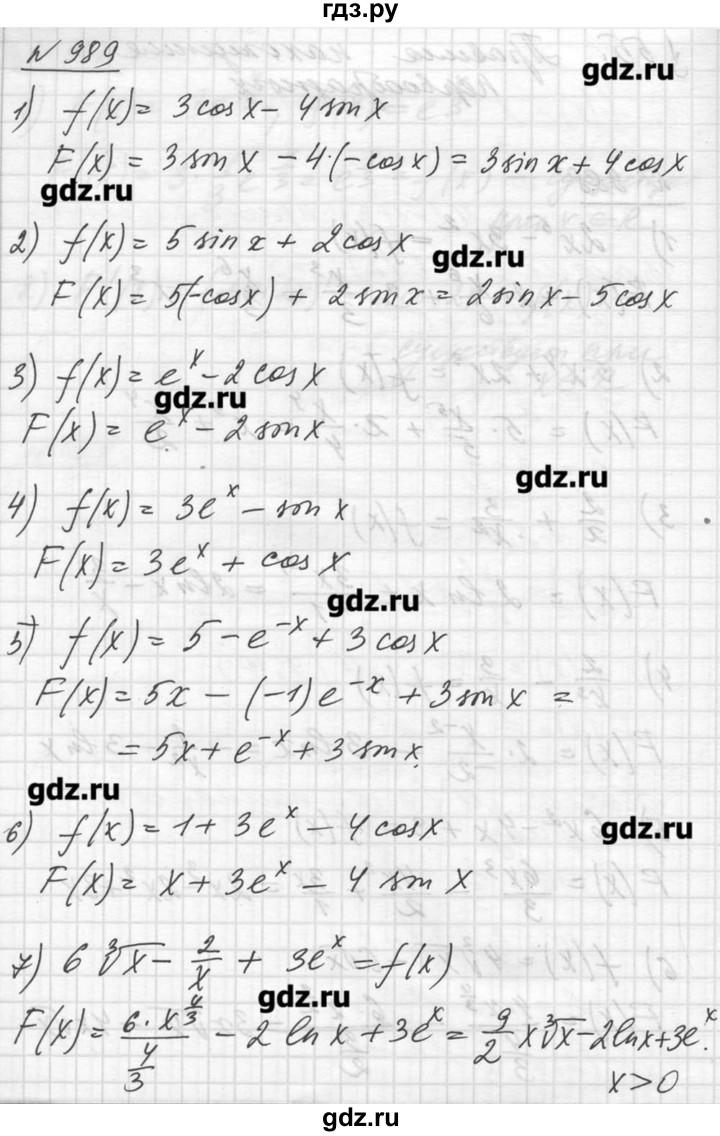 гдз.ру
N 989
gdz.ru
1) f(x) = 3cosx - 4sinx
F(x) = 3sinx - 4·(-cosx) = 3sinx + 4cosx
gdz.ru
2) f(x) = 5sinx + 2cosx
gdz.ru
F(x) = 5(-cosx) + 2sinx = 2sinx - 5cosx
3) f(x) = e^x - 2cosx
gdz.ru
F(x) = e^x - 2sinx
gdz.ru
4) f(x) = 3e^x - sinx
F(x) = 3e^x + cosx
gdz.ru
5) f(x) = 5 - e^{-x} + 3cosx
F(x) = 5x - (-1)e^{-x} + 3sinx =
= 5x + e^{-x} + 3sinx.
gdz.ru
6) f(x) = 1 + 3e^x - 4cosx
gdz.ru
F(x) = x + 3e^x - 4sinx
7) 6∛x - 2/x + 3e^x = f(x)
gdz.ru
F(x) = (6·x^{4/3})/(4/3) - 2lnx + 3e^x = 9/2 x∛x - 2lnx + 3e^x.
x > 0
gdz.ru